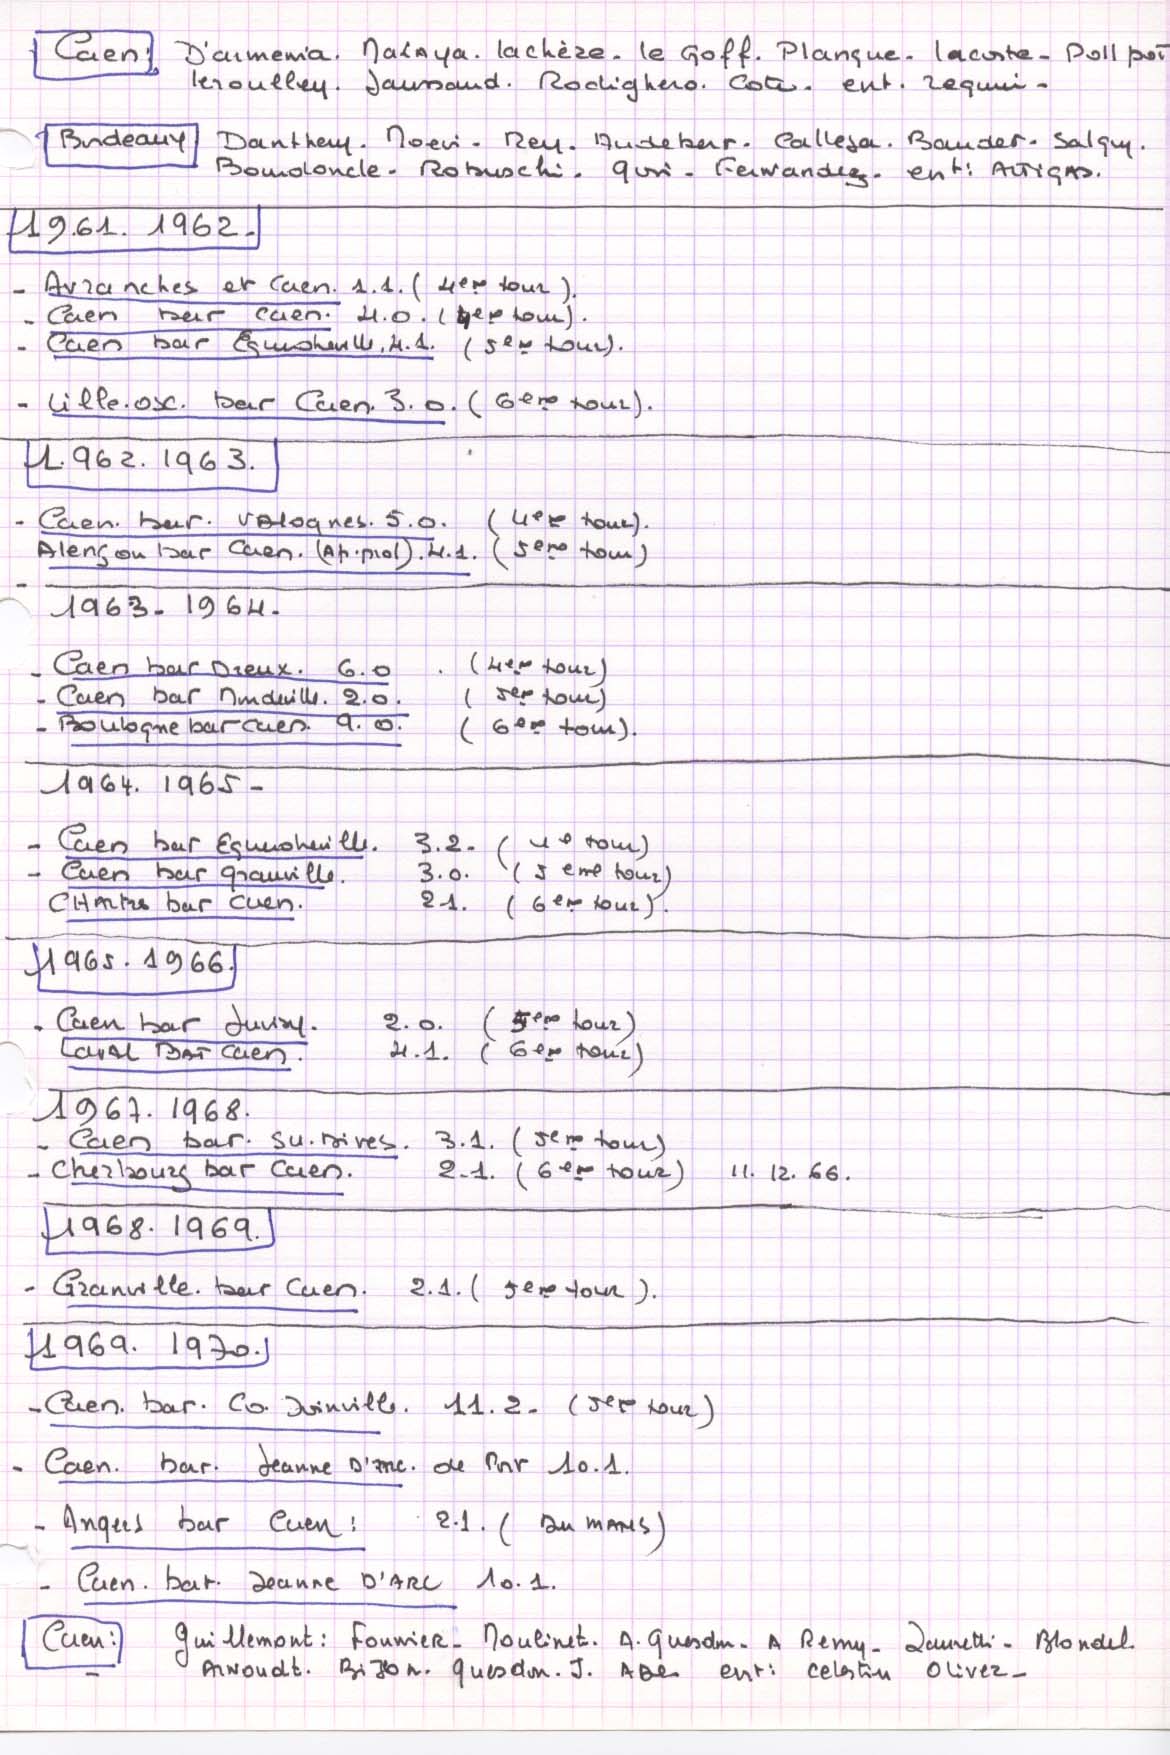 Caen: D'armenia. Malaya. lachèze. le Goff. Planque. lacoste. Poll
leroulley. Jaussaud. Rodighero. Cote. ent.
Bordeaux Danthemy. Moevi. Rey. Audebar. Calleja. Bauder. Salguy.
Bourdoncle. Robuschi. Guri. Ferwandez. ent: ARTIGAS.
1961. 1962.
- Avranches et Caen. 1.1. (4eme tour).
- Caen bar Caen. 4.0. (4eme tour).
- Caen bar Equeherville. 4.1. (5eme tour).
- Lille.osc. bar Caen. 3.0. (6eme tour).
1.962. 1963.
- Caen. bar. VAlognes. 5.0. (4eme tour).
Alençon bar Caen. (Ap.prol). 4.1. (5eme tour)
-
1963. 1964.
- Caen bar Dreux. 6.0. (4eme tour)
- Caen bar Mondeville. 2.0. (5eme tour)
- Boulogne bar caen. 9.0. (6eme tour).
1964. 1965 -
- Caen bar Equeherville. 3.2. (4e tour)
- Caen bar granville. 3.0. (5eme tour)
CHARTRES bar Caen. 2.1. (6eme tour).
1965. 1966.
- Caen bar Juvisy. 2.0. (5eme tour)
LAVAL BAT Caen. 4.1. (6eme tour)
1967. 1968.
- Caen bar. SU. Dives. 3.1. (5eme tour)
- Cherbourg bar Caen. 2.1. (6eme tour) 11. 12. 66.
1968. 1969.
- Granville. bar Caen. 2.1. (5eme tour).
1969. 1970.
- Caen. bar. Co. Joinville. 11.2. (5eme tour)
- Caen. bar. Jeanne D'Arc. de 10.1.
- Angers bar Caen: 2.1. (Du MANS)
- Caen. bar. Jeanne D'ARC 10.1.
Caen: Guillemont: Fournier. Moulinet. A. Quesdon. A Remy. Zannetti. Blondel.
Arnoudt. Bijon. Quesdon. J. Abe ent: celestin Oliver.